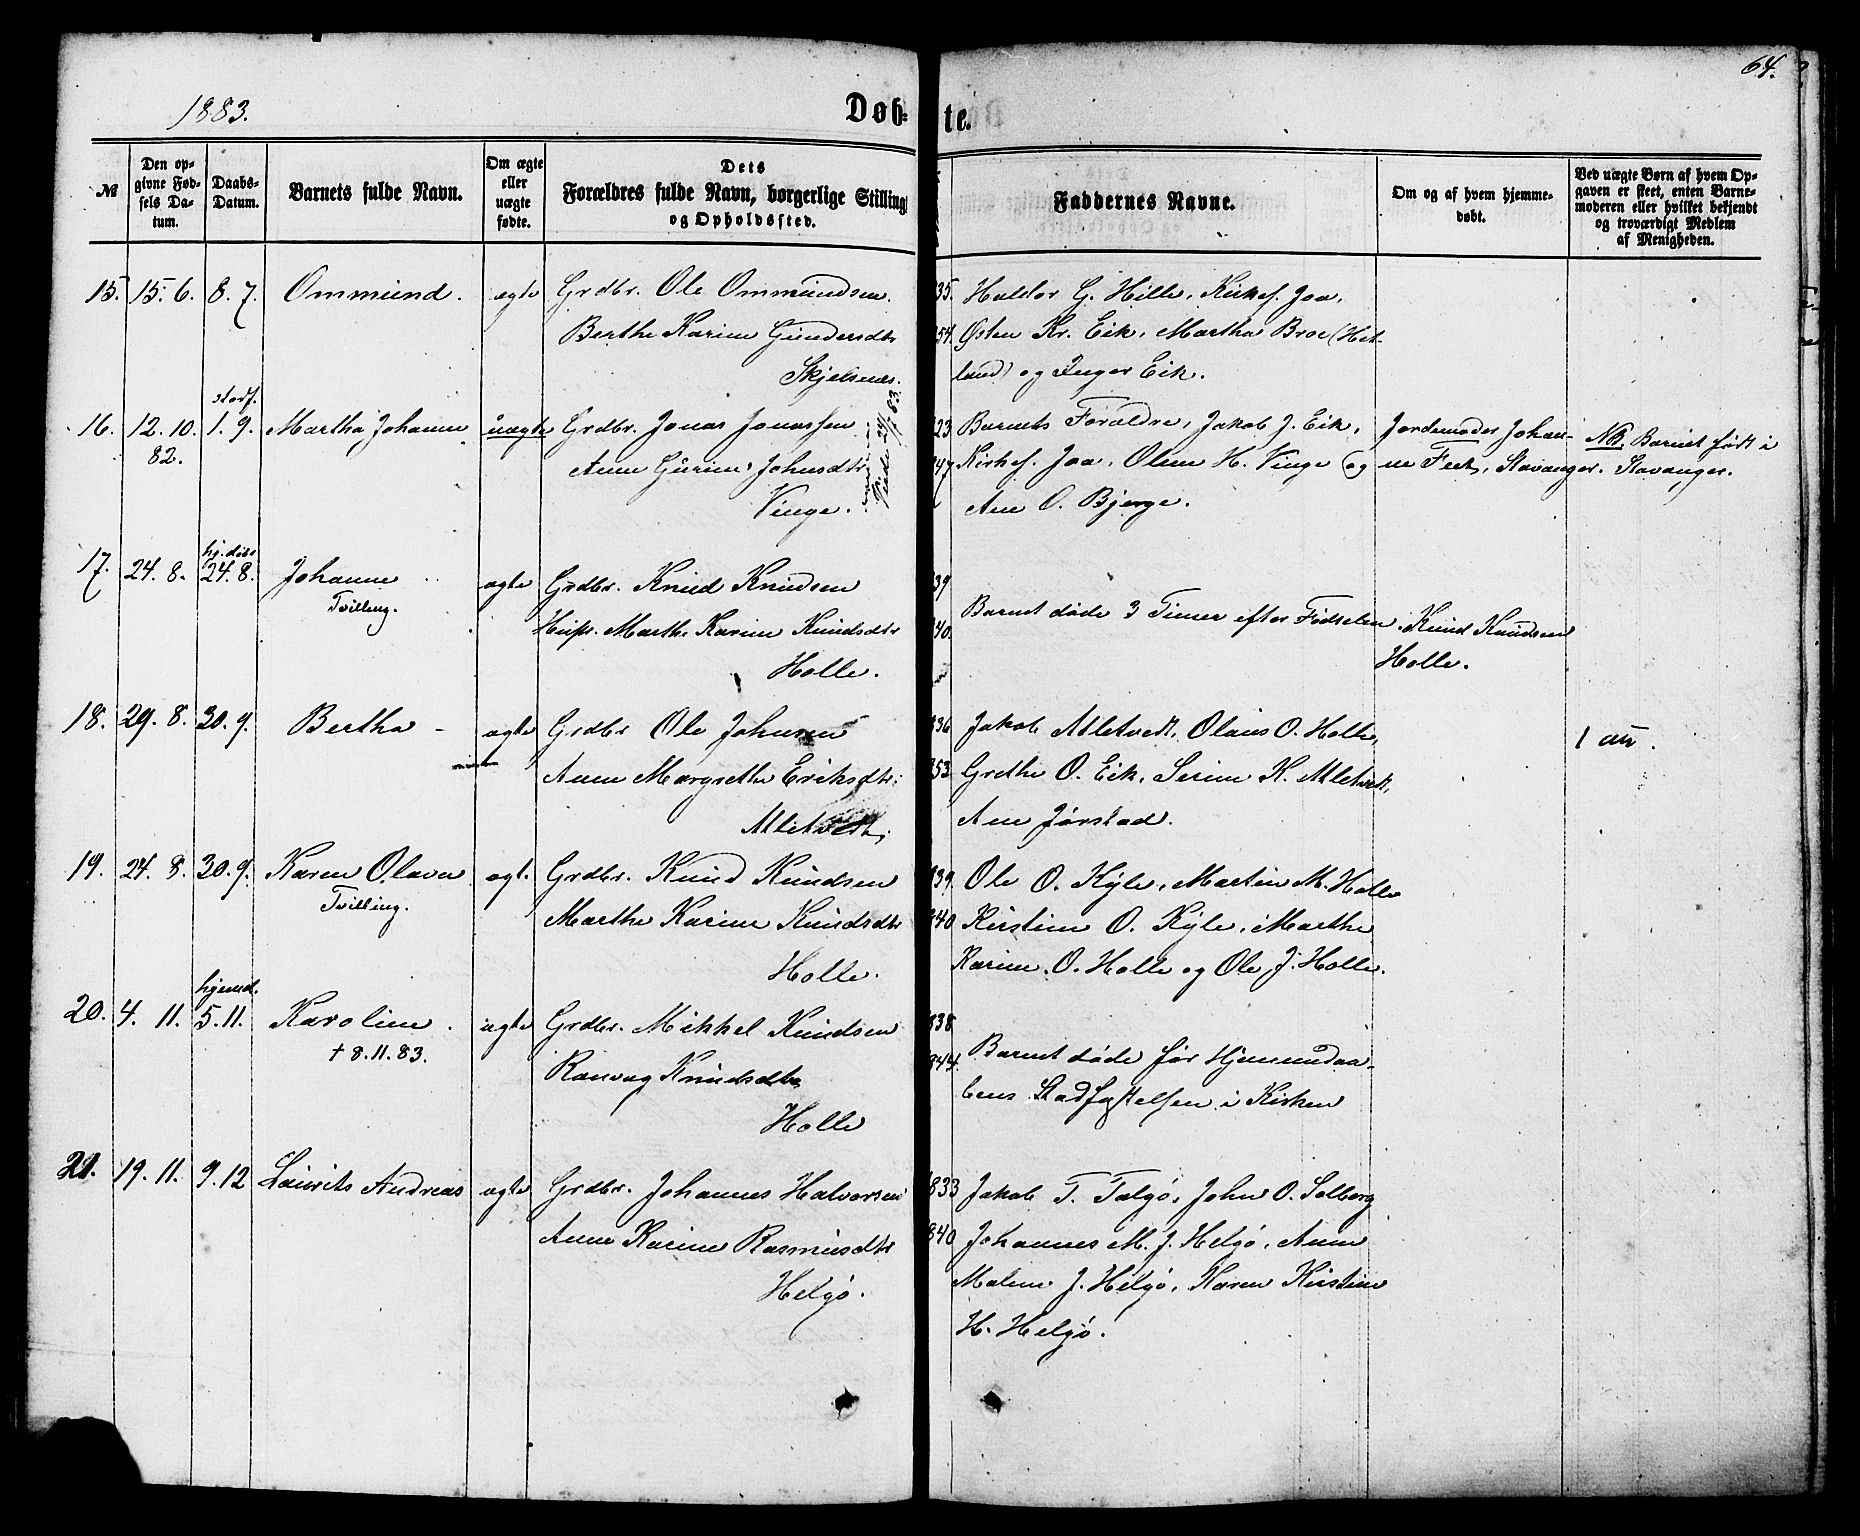 64.
1883.
Døb-
te.
№
Den op-
givne Fød-
sels Da-
tum.
Daabs-
Datum.
Barnets fulde Navn.
Om ægte
eller
uægte
fødte.
Dets
Forældres fulde Navn, borgerlige Stilling
og Opholdssted.
Faddernes Navne.
Om og af hvem hjemme-
døbt.
Ved uægte Børn af hvem Op-
gaven er skeet, enten Barne-
moderen eller hvilket bekjendt
og troværdigt Medlem
af Menigheden.
15. 15. 6. 8. 7. Ommund. ægte Grdbr. Ole Ommundsen.
Berthe Karine Gundersdtr
Skjelsnes.
35. Haldor G. Hille, Kirkes. Joa,
54. Østen Kr. Eik, Martha Broe (Het-
land) og Inger Eik.
stadf.
16. 12. 10. 1. 9. Martha Johanne uægte Grdbr. Jonas Jonassen
82.
Anne Gurine Johnsdtr
Vinge.
24/7 83.
23 Barnets Forældre, Jakob J. Eik,
47 Kirkes. Joa, Oline H. Vinge og
Ane O. Bjerge.
Jordemoder Johan-
ne Feet, Stavanger.
NB. Barnet født i
Stavanger.
hj. døbt
17. 24. 8. 24. 8. Johanne ægte Grdbr. Knud Knudsen
Tvilling.
Hustr. Marthe Karine Knudsdtr
Holle.
39
40.
Barnet døde 3 Timer efter Fødselen.
Knud Knudsen
Holle.
18. 29. 8. 30. 9. Bertha ægte Grdbr Ole Johnsen
Anne Margrethe Eriksdtr.
Mletvedt.
36 Jakob Mletvedt, Olaus O. Holle,
53 Grethe O. Eik, Serine K. Mletvedt,
Ane Jørstad.
19. 24. 8. 30. 9. Karen Olava ægt. Grdbr. Knud Knudsen
Tvilling.
Marthe Karine Knudsdtr
Holle.
39. Ole O. Kyle, Martin M. Holle
840 Kirstine O. Kyle, Marthe
Karine O. Holle og Ole J. Holle.
hjemd.
20. 4. 11. 5. 11. Karoline. ægte Grdbr. Mikkel Knudsen
† 8. 11. 83.
Ranvag Knudsdtr
Holle
838
844.
Barnet døde før Hjemmedaa-
bens Stadfæstelsen i Kirken
21. 19. 11. 9. 12 Laurits Andreas ægte Grdbr. Johannes Halvorsen
Anne Karine Rasmusdtr
Helgø.
833 Jakob T. Talgø, John O. Solberg
840 Johannes M. J. Helgø, Anne
Malene J. Helgø, Karen Kirstine
H. Helgø.